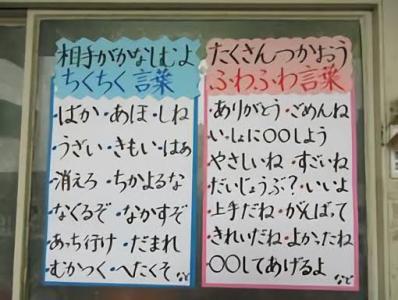 相手がかなしむよ
ちくちく言葉
・ばか・あほ・しね
・うざい・きもい・はぁ
・消えろ・ちかよるな
・なぐるぞ・なかすぞ
・あっち行け・だまれ
・むかつく・へたくそ など
たくさんつかおう
ふわふわ言葉
・ありがとう・ごめんね
・いっしょに〇〇しよう
・やさしいね・すごいね
・だいじょうぶ?・いいよ
・上手だね・がんばって
・きれいだね・よかったね
・〇〇してあげるよ など